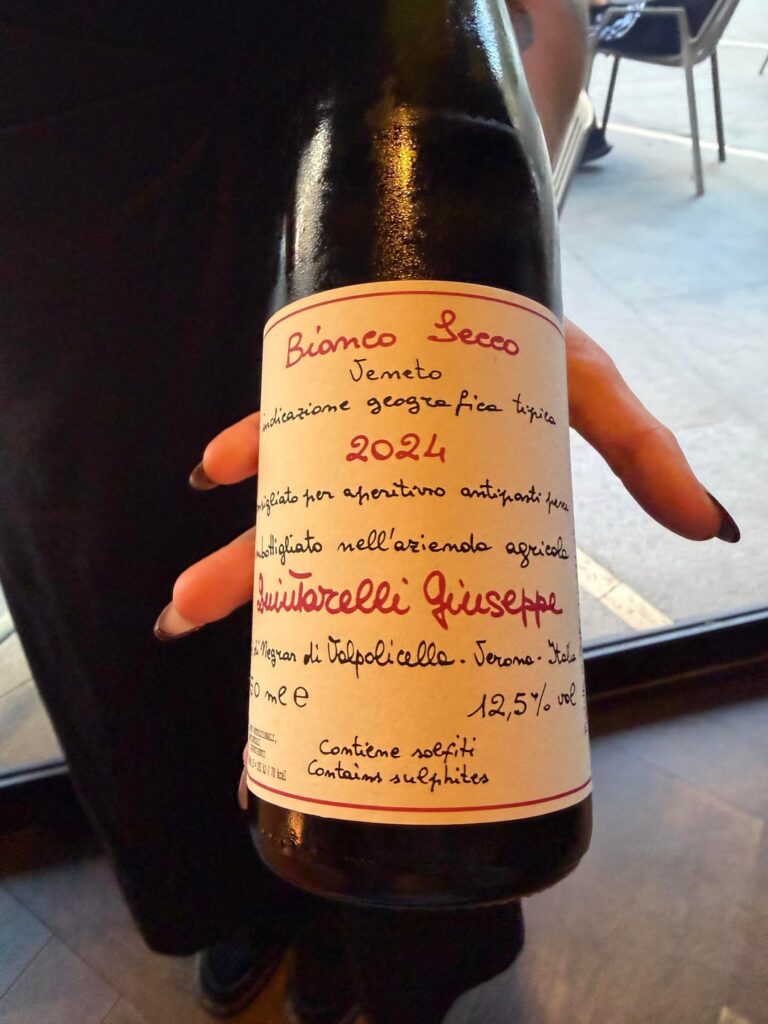 Bianco Secco
Veneto
indicazione geografica tipica
2024
nsigliato per aperitivo antipasti pesce
mbottigliato nell'azienda agricola
Quintarelli Giuseppe
di Negrar di Valpolicella. Verona. Italia
50 ml e
12,5% vol
Contiene solfiti
Contains sulphites